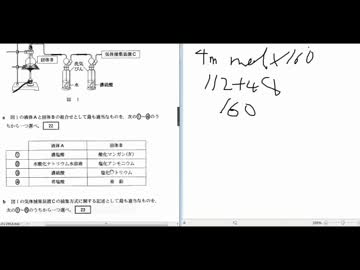 固体B
気体捕集装置C
洗気
びん
水
濃硫酸
図 1
a 図1の液体Aと固体Bの組合せとして最も適当なものを，次の①～④のう
ちから一つ選べ。 22
液体A 固体B
① 濃塩酸 酸化マンガン(Ⅳ)
② 水酸化ナトリウム水溶液 塩化アンモニウム
③ 濃硫酸 塩化ナトリウム
④ 希塩酸 亜鉛
b 図1の気体捕集装置Cの捕集方式に関する記述として最も適当なものを，
次の①～⑥のうちから一つ選べ。 23
4m mol × 160
112+48
160